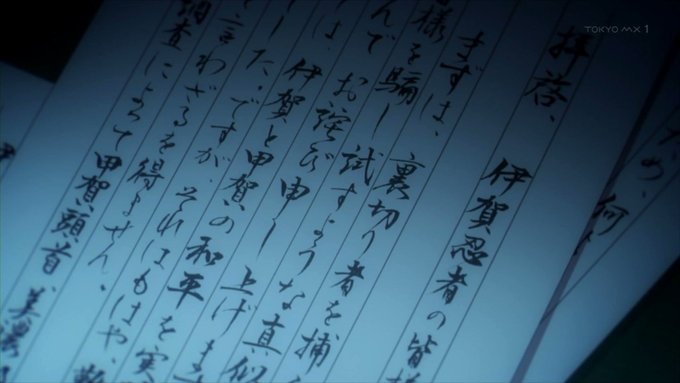 TOKYO MX 1
ため、何
拝啓、伊賀忍者の皆
まずは、裏切り者を捕
様を騙し試すような真似
んでお詫び申し上げます
は、伊賀と甲賀の和平を実
した。ですが、それはもはや、
と言わざるを得ません。
調査によって甲賀頭首、美濃